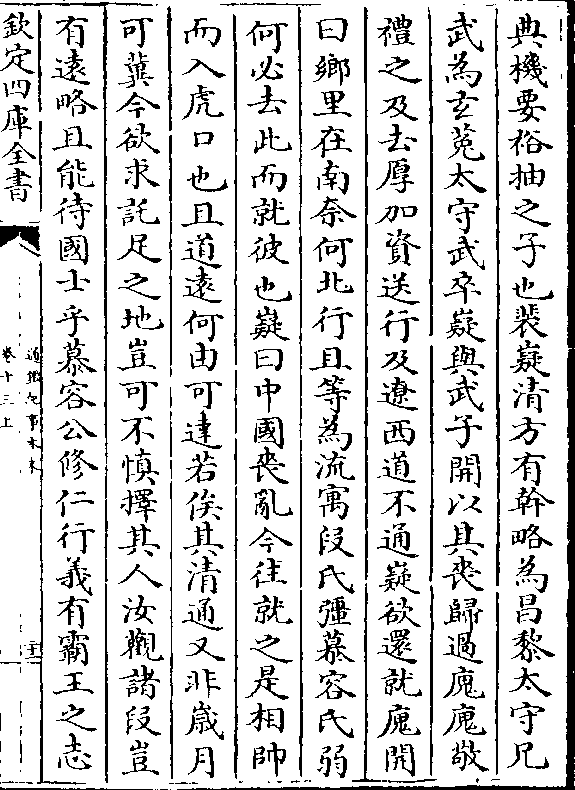 典機要裕抽之子也裴嶷清方有幹略為昌黎太守兄
武為玄菟太守武卒嶷與武子開以其喪歸過廆廆敬
禮之及去厚加資送行及遼西道不通嶷欲還就廆開
曰鄉里在南奈何北行且等為流寓段氏彊慕容氏弱
何必去此而就彼也嶷曰中國喪亂今往就之是相帥
而入虎口也且道遠何由可達若俟其清通又非歲月
可冀今欲求託足之地豈可不慎擇其人汝觀諸段豈
有遠略且能待國士乎慕容公修仁行義有霸王之志
欽定四庫全書
通鑑紀事本末
卷十三上